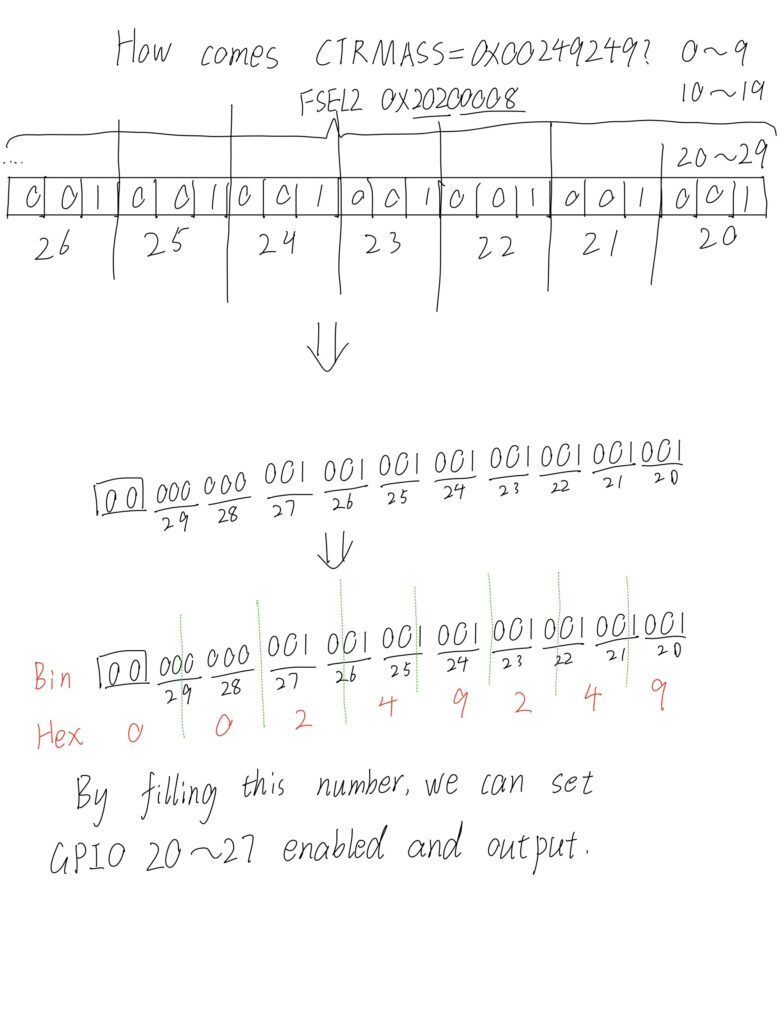 How comes CTRMASS=0X00249249? 0~9
FSEL2 0X20200008 10~19
.... 20~29
0 0 1 0 0 1 0 0 1 0 0 1 0 0 1 0 0 1 0 0 1
26 25 24 23 22 21 20
00 000 000 001 001 001 001 001 001 001 001
29 28 27 26 25 24 23 22 21 20
Bin 00 000 000 001 001 001 001 001 001 001 001
29 28 27 26 25 24 23 22 21 20
Hex 0 0 2 4 9 2 4 9
By filling this number, we can set
GPIO 20~27 enabled and output.